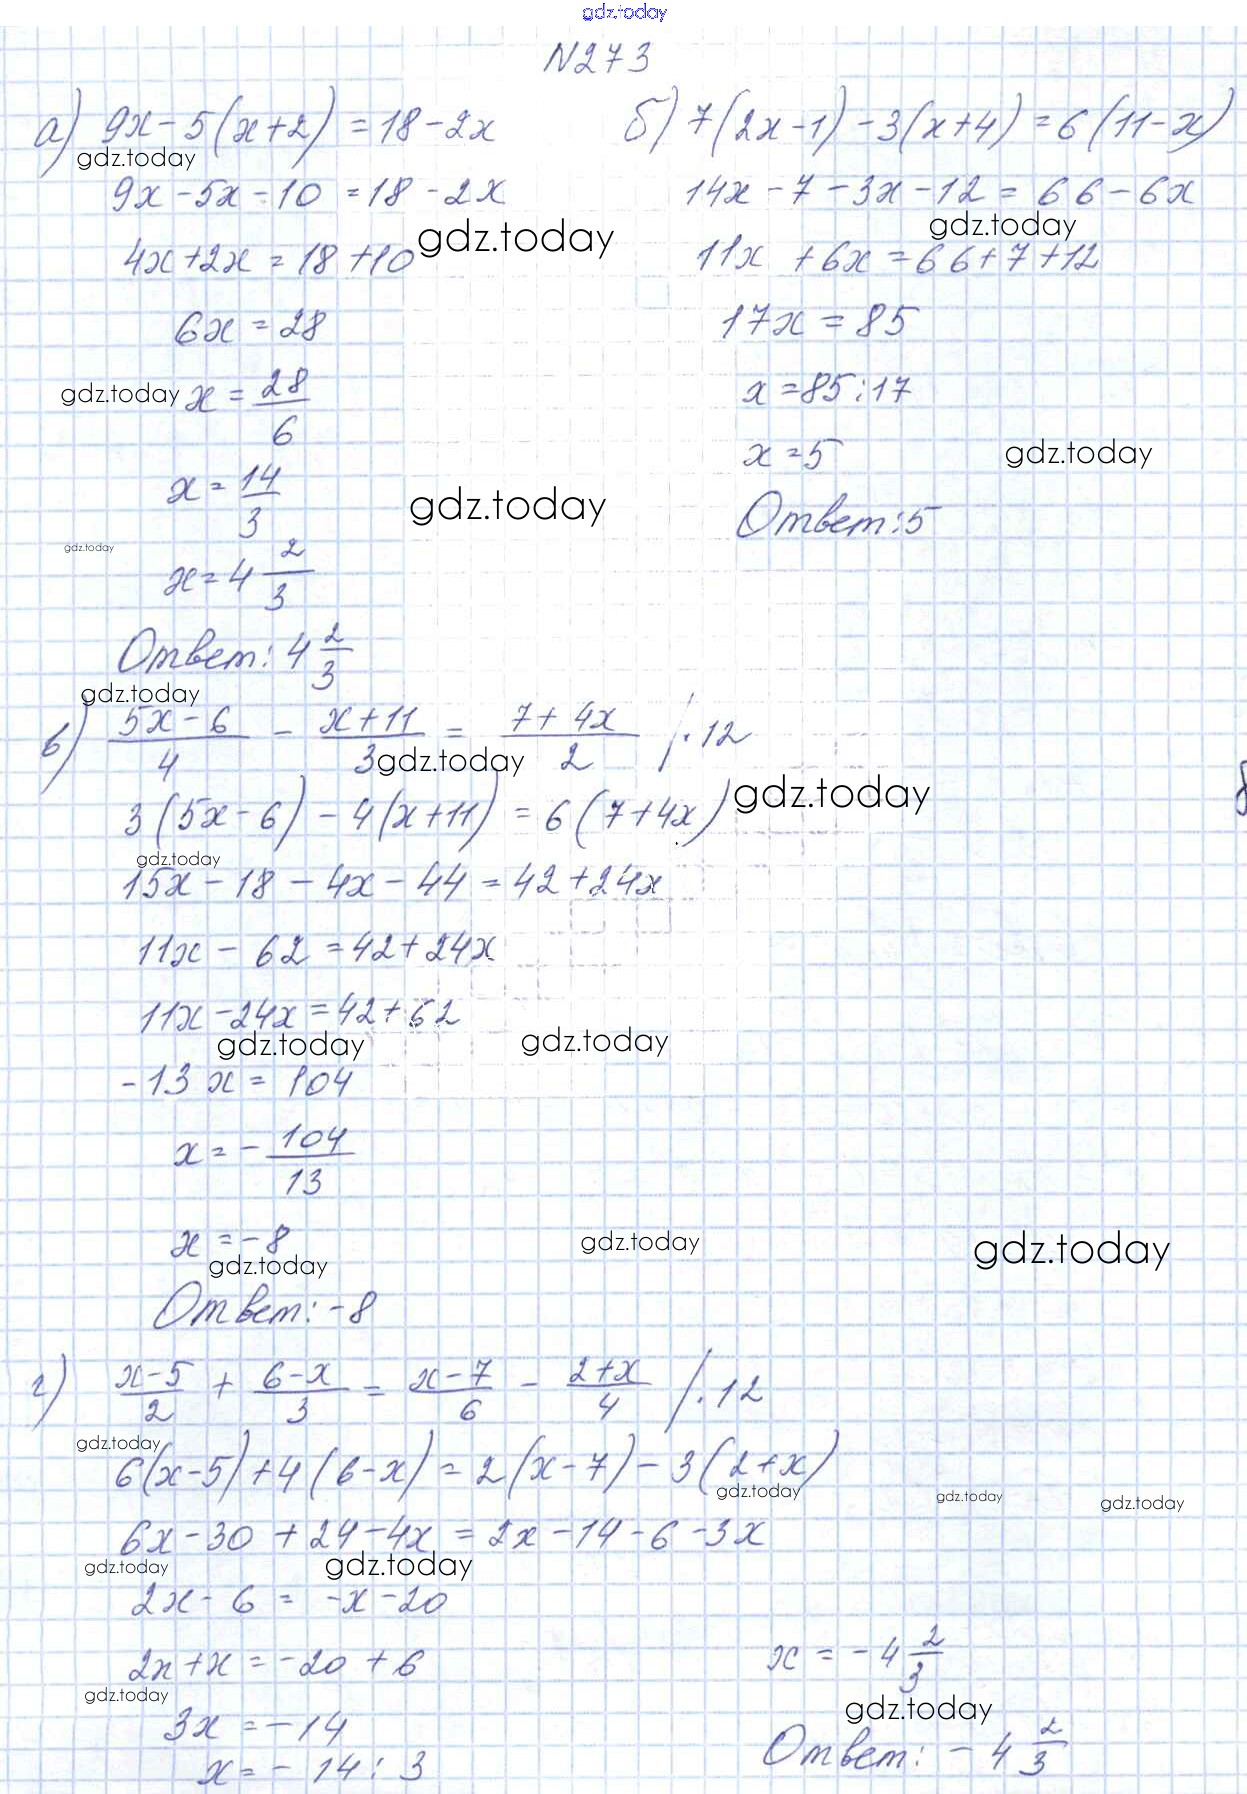 gdz.today
N273
а) 9x-5(x+2)=18-2x
gdz.today
9x-5x-10=18-2x
4x+2x=18+10
gdz.today
6x=28
gdz.today
x=28/6
x=14/3
gdz.today
gdz.today
x=4 2/3
Ответ: 4 2/3
gdz.today
б) 7(2x-1)-3(x+4)=6(11-x)
14x-7-3x-12=66-6x
gdz.today
11x+6x=66+7+12
17x=85
x=85:17
x=5
gdz.today
Ответ: 5
в) (5x-6)/4 - (x+11)/3 = (7+4x)/2 /·12
gdz.today
3(5x-6)-4(x+11)=6(7+4x)
gdz.today
gdz.today
15x-18-4x-44=42+24x
11x-62=42+24x
11x-24x=42+62
gdz.today
gdz.today
-13x=104
x=-104/13
x=-8
gdz.today
gdz.today
gdz.today
Ответ: -8
г) (x-5)/2 + (6-x)/3 = (x-7)/6 - (2+x)/4 /·12
gdz.today
6(x-5)+4(6-x)=2(x-7)-3(2+x)
gdz.today
gdz.today
gdz.today
6x-30+24-4x=2x-14-6-3x
gdz.today
gdz.today
2x-6=-x-20
2x+x=-20+6
gdz.today
3x=-14
x=-14:3
x=-4 2/3
gdz.today
Ответ: -4 2/3